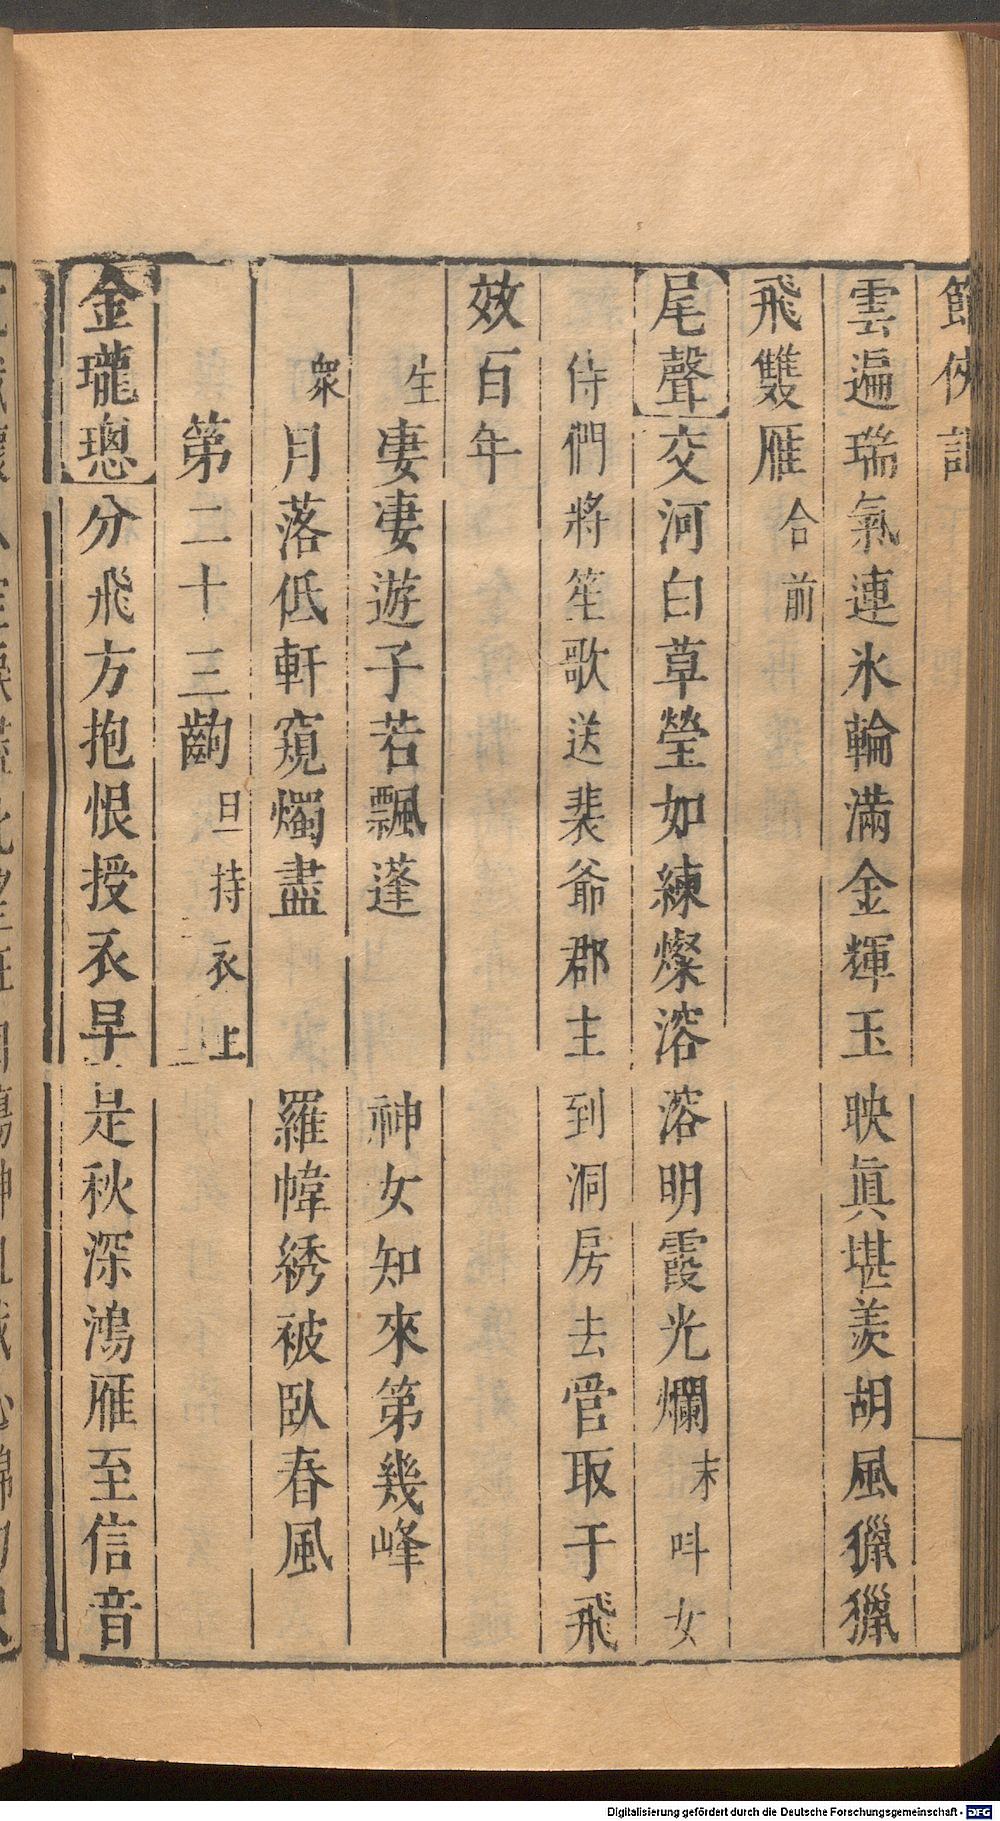 節俠記
雲遍瑞氣連氷輪滿金輝玉映眞堪羨胡風獵獵
飛雙雁合前
尾聲交河白草瑩如練燦溶溶明霞光爛末呌女
侍們將笙歌送裴爺郡主到洞房去管取于飛
效百年
生凄凄遊子若飄蓬 神女知來第幾峰
衆月落低軒窺燭盡 羅幃綉被臥春風
第二十三齣旦持衣上
金瓏璁分飛方抱恨授衣早是秋深鴻雁至信音
Digitalisierung gefördert durch die Deutsche Forschungsgemeinschaft - DFG